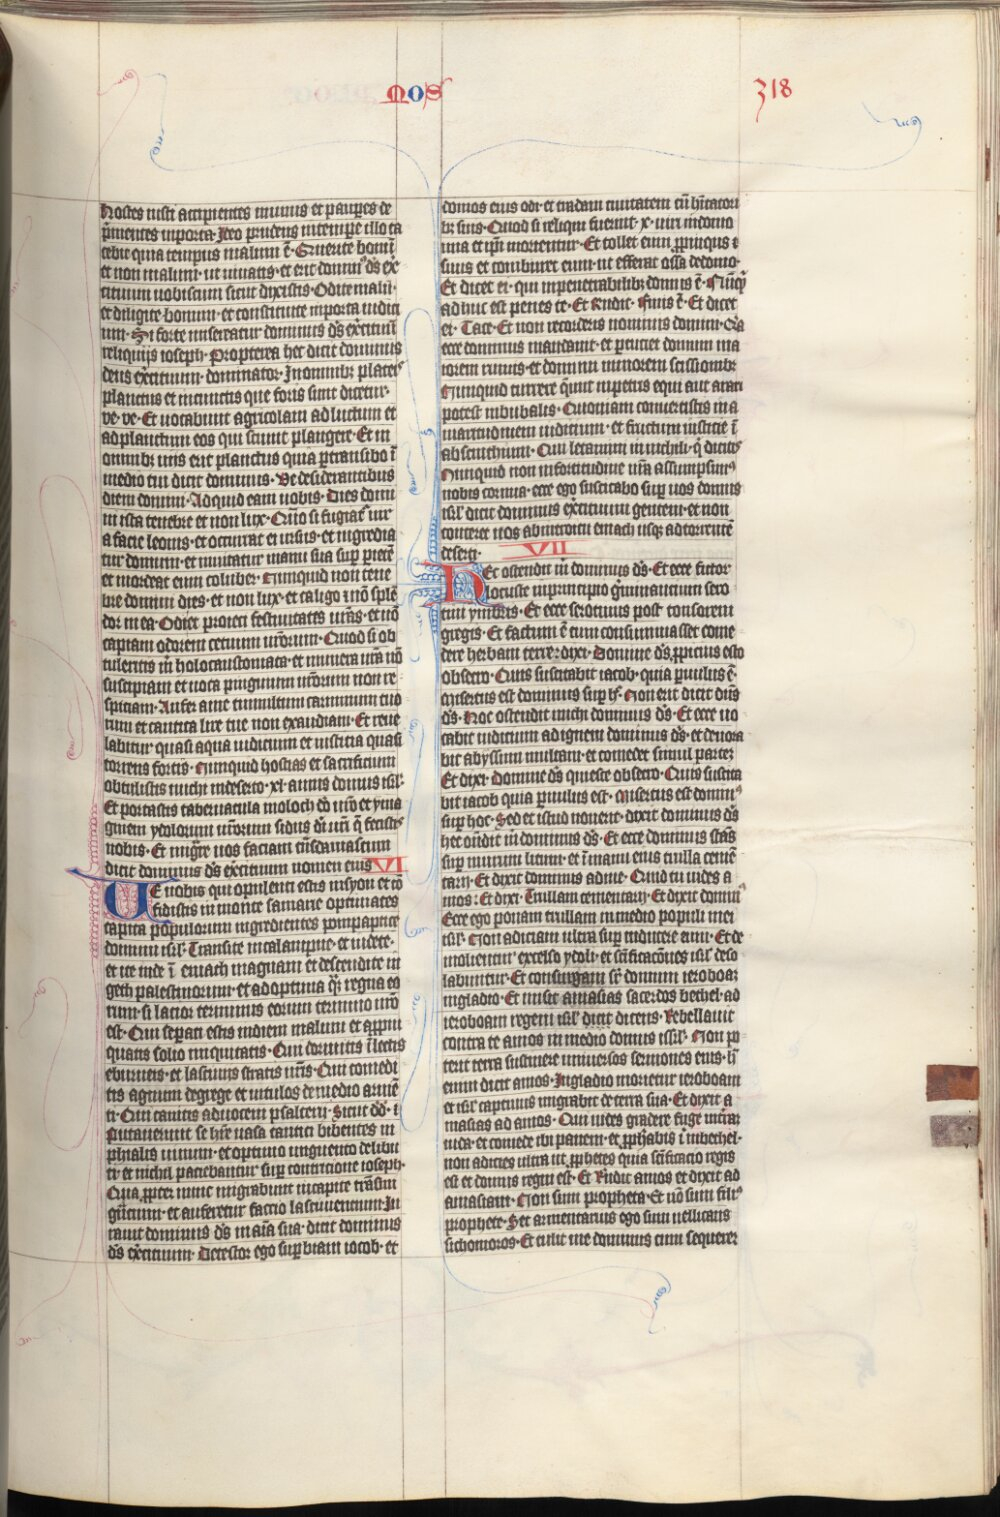 mos
318
hostes iusti accipientes munus et paupes de
pmentes in porta· Ideo prudens in tempe illo ta
cebit quia tempus malum ē· Querite bonū
et non malum· ut vivatis· et erit dominꝰ ds exͬ
cituum vobiscum sicut dixistis· Odite malū·
et diligite bonum· et constituite in porta iudici
um· Si forte misereatur dominus ds exercituū
reliquijs ioseph· Propterea hec dicit dominus
deus exͬcituum· dominator· In omnibꝫ plateis
planctus et in cunctis que foris sunt dicetur·
ve· ve· Et vocabunt agricolam ad luctum et
ad planctum eos qui sciunt plangere· Et in
omnibꝫ vijs erit planctus quia ptransibo ī
medio tui dicit dominus· Ve desiderantibus
diem domini· Ad quid eam vobis· Dies domi
ni ista tenebre et non lux· Qūo si fugiat vir
a facie leonis· et occurrat ei ursus· et ingredia
tur domum et innitatur manu sua sup pietē
et mordeat eum coluber· Nunquid non tene
bre domini dies· et non lux· et caligo et nō splē
dor in ea· Odi et proieci festivitates vrās· et nō
capiam odorem cetuum vrōrum· Quod si ob
tuleritis m̄ holocaustomata· et munera vrā nō
suscipiam et vota pinguium vrōrum non re
spiciam· Aufer a me tumultum carminum tuo
rum et cantica lire tue non exaudiam· Et reve
labitur quasi aqua iudicium et iusticia quasi
torrens fortis· Nunquid hostias et sacrificium
obtulistis michi in deserto· xl· annis domus isrl·
Et portastis tabernacula moloch dō vrō et yma
ginem ydolorum vrōrum sidus di vrī q̄ fecistis
vobis· Et migͬre vos faciam trās damascum
dicit dominus ds exercituum nomen eius VI
Ve vobis qui opulenti estis in syon et cō
fiditis in monte samarie optimates
capita populorum ingredientes pompatice
domum isrl· Transite in calampnie· et videte·
et ite inde ī emath magnam et descendite in
geth palestinorum· et ad optima qͣ regna eo
rum· si lacior terminus eorum termino vrō
est· Qui sepati estis in diem malum et appin
quatis solio iniquitatis· Qui dormitis ī lectis
eburneis· et lascivitis stratis vrīs· Qui comedi
tis agnum de grege et vitulos de medio armē
ti· Qui canitis ad vocem psalterij· Sicut dd̄· ī
putaverunt se hr̄e vasa cantici bibentes in
phialis vinum· et optimo unguento delibu
ti· et nichil paciebantur sup contricione ioseph·
Qua ppter nunc migrabunt in capite trāsmi
gͣcium· et auferetur factio lascivientium· Iu
ravit dominus ds ī aīa sua· dicit dominus
ds exͬcituum· Detestor ego supbiam iacob· et
domos eius odi· et tradam civitatem cū hītatori
bꝫ suis· Quod si reliqui fuerint· x· viri in domo
una et ipi morientur· Et tollet eum ppinquꝰ
suus et comburet eum· ut efferat ossa de domo·
Et dicet ei· qui in penetrabilibꝫ domus ē· Nūqͥ
adhuc est penes te· Et Rndit· Finis ē· Et dicet
ei· Tace· Et non recorderis nominis domini· Qͣa
ecce dominus mandavit· et pcuciet domum ma
iorem ruinis· et domum minorem scissionibꝫ
Nunquid currere qͣunt in petris equi aut arari
potest in bubalis· Quoniam convertistis in a
maritudinem iudicium· et fructum iusticie ī
absinthium· Qui letamini in nichili· q̄ dicitis
Nunquid non in fortitudine vrā assumpsimꝰ
nobis cornua· ecce ego suscitabo sup vos domus
isrl· dicit dominus exͬcituum gentem· et non
conteret vos ab introitu emath usqꝫ ad torrentē
deserti· VII
Hec ostendit m̄ dominus ds· Et ecce fictor
locuste in principio gͬminancium sero
tini ymbris· Et ecce serotinus post tonsorem
gregis· Et factum ē cum consummasset come
dere herbam terre· dixi· Domine ds ppicius esto
obsecro· Quis suscitabit iacob· quia pvulus ē·
Misertus est dominus sup h͛· Non erit dicit dn̄s
ds· Hoc ostendit michi dominus ds· Et ecce vo
cabit iudicium ad ignem dominus ds· et devora
bit abyssum multam· et comedet simul partez
Et dixi· Domine ds quiesce obsecro· Quis suscita
bit iacob quia pvulus est· Misertus est dominꝰ
sup hoc· Sed et istud non erit· dixit dominus ds
hec ondit m̄ dominus ds· Et ecce dominus stās
sup murum litum· et ī manu eius trulla cemē
tarij· Et dixit dominus ad me· Quid tu vides a
mos· Et dixi· Trullam cementarij· Et dixit dominꝰ
Ecce ego ponam trullam in medio populi mei
isrl· Non adiciam ultra sup inducere eum· Et de
molientur excelsa ydoli· et scīficacōnes isrl· deso
labuntur· Et consurgam sꝫ domum ieroboaꝫ
in gladio· Et misit amasias sacerdos bethel· ad
ieroboam regem isrl· dicit dicens· Rebellavit
contra te amos in medio domus isrl· Non po
terit terra sustinere universos sermones eius· h̄
enim dicit amos· In gladio morietur ieroboam
et isrl· captivus migrabit de terra sua· Et dixit a
masias ad amos· Qui vides gradere fuge in trāꝫ
iuda· et comede ibi panem· et pphabis ī in bethel·
non adicies ultra ut pphetes quia scīficacio regis
est et domus regni est· Et Rndit amos et dixit ad
amasiam· Non sum propheta· Et nō sum filiꝰ
prophete· Set armentarius ego sum vellicans
sichomoros· Et tulit me dominus cum sequerer